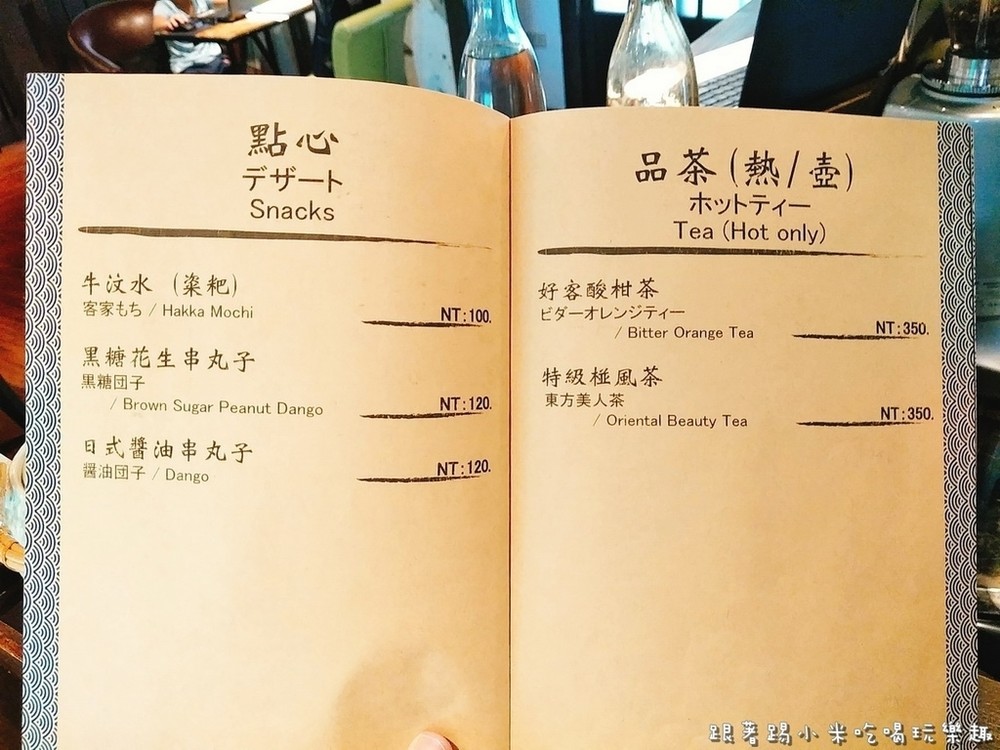 點心
デザート
Snacks
牛汶水 (粢粑)
客家もち / Hakka Mochi
NT:100.
黑糖花生串丸子
黒糖団子
/ Brown Sugar Peanut Dango
NT:120.
日式醬油串丸子
醤油団子 / Dango
NT:120.
品茶(熱/壺)
ホットティー
Tea (Hot only)
好客酸柑茶
ビダーオレンジティー
/ Bitter Orange Tea
NT:350.
特級椪風茶
東方美人茶
/ Oriental Beauty Tea
NT:350.
跟著踢小米吃喝玩樂趣